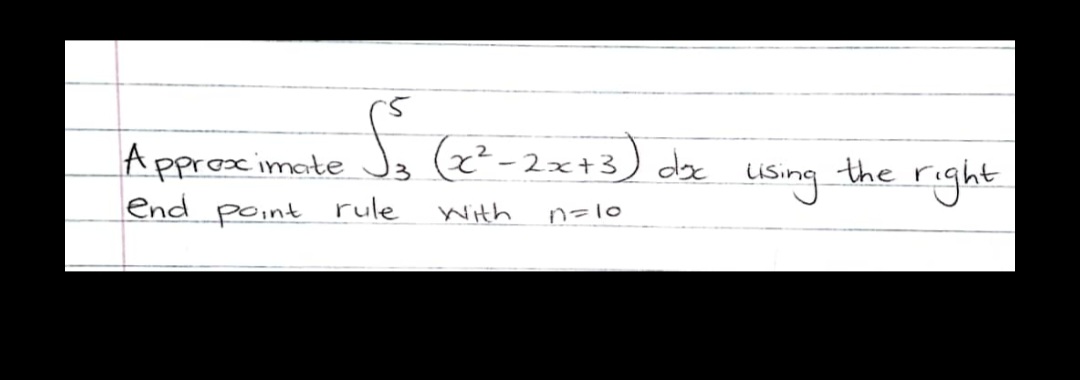 Approximate ∫₃⁵ (x²-2x+3) dx using the right
end point rule with n=10